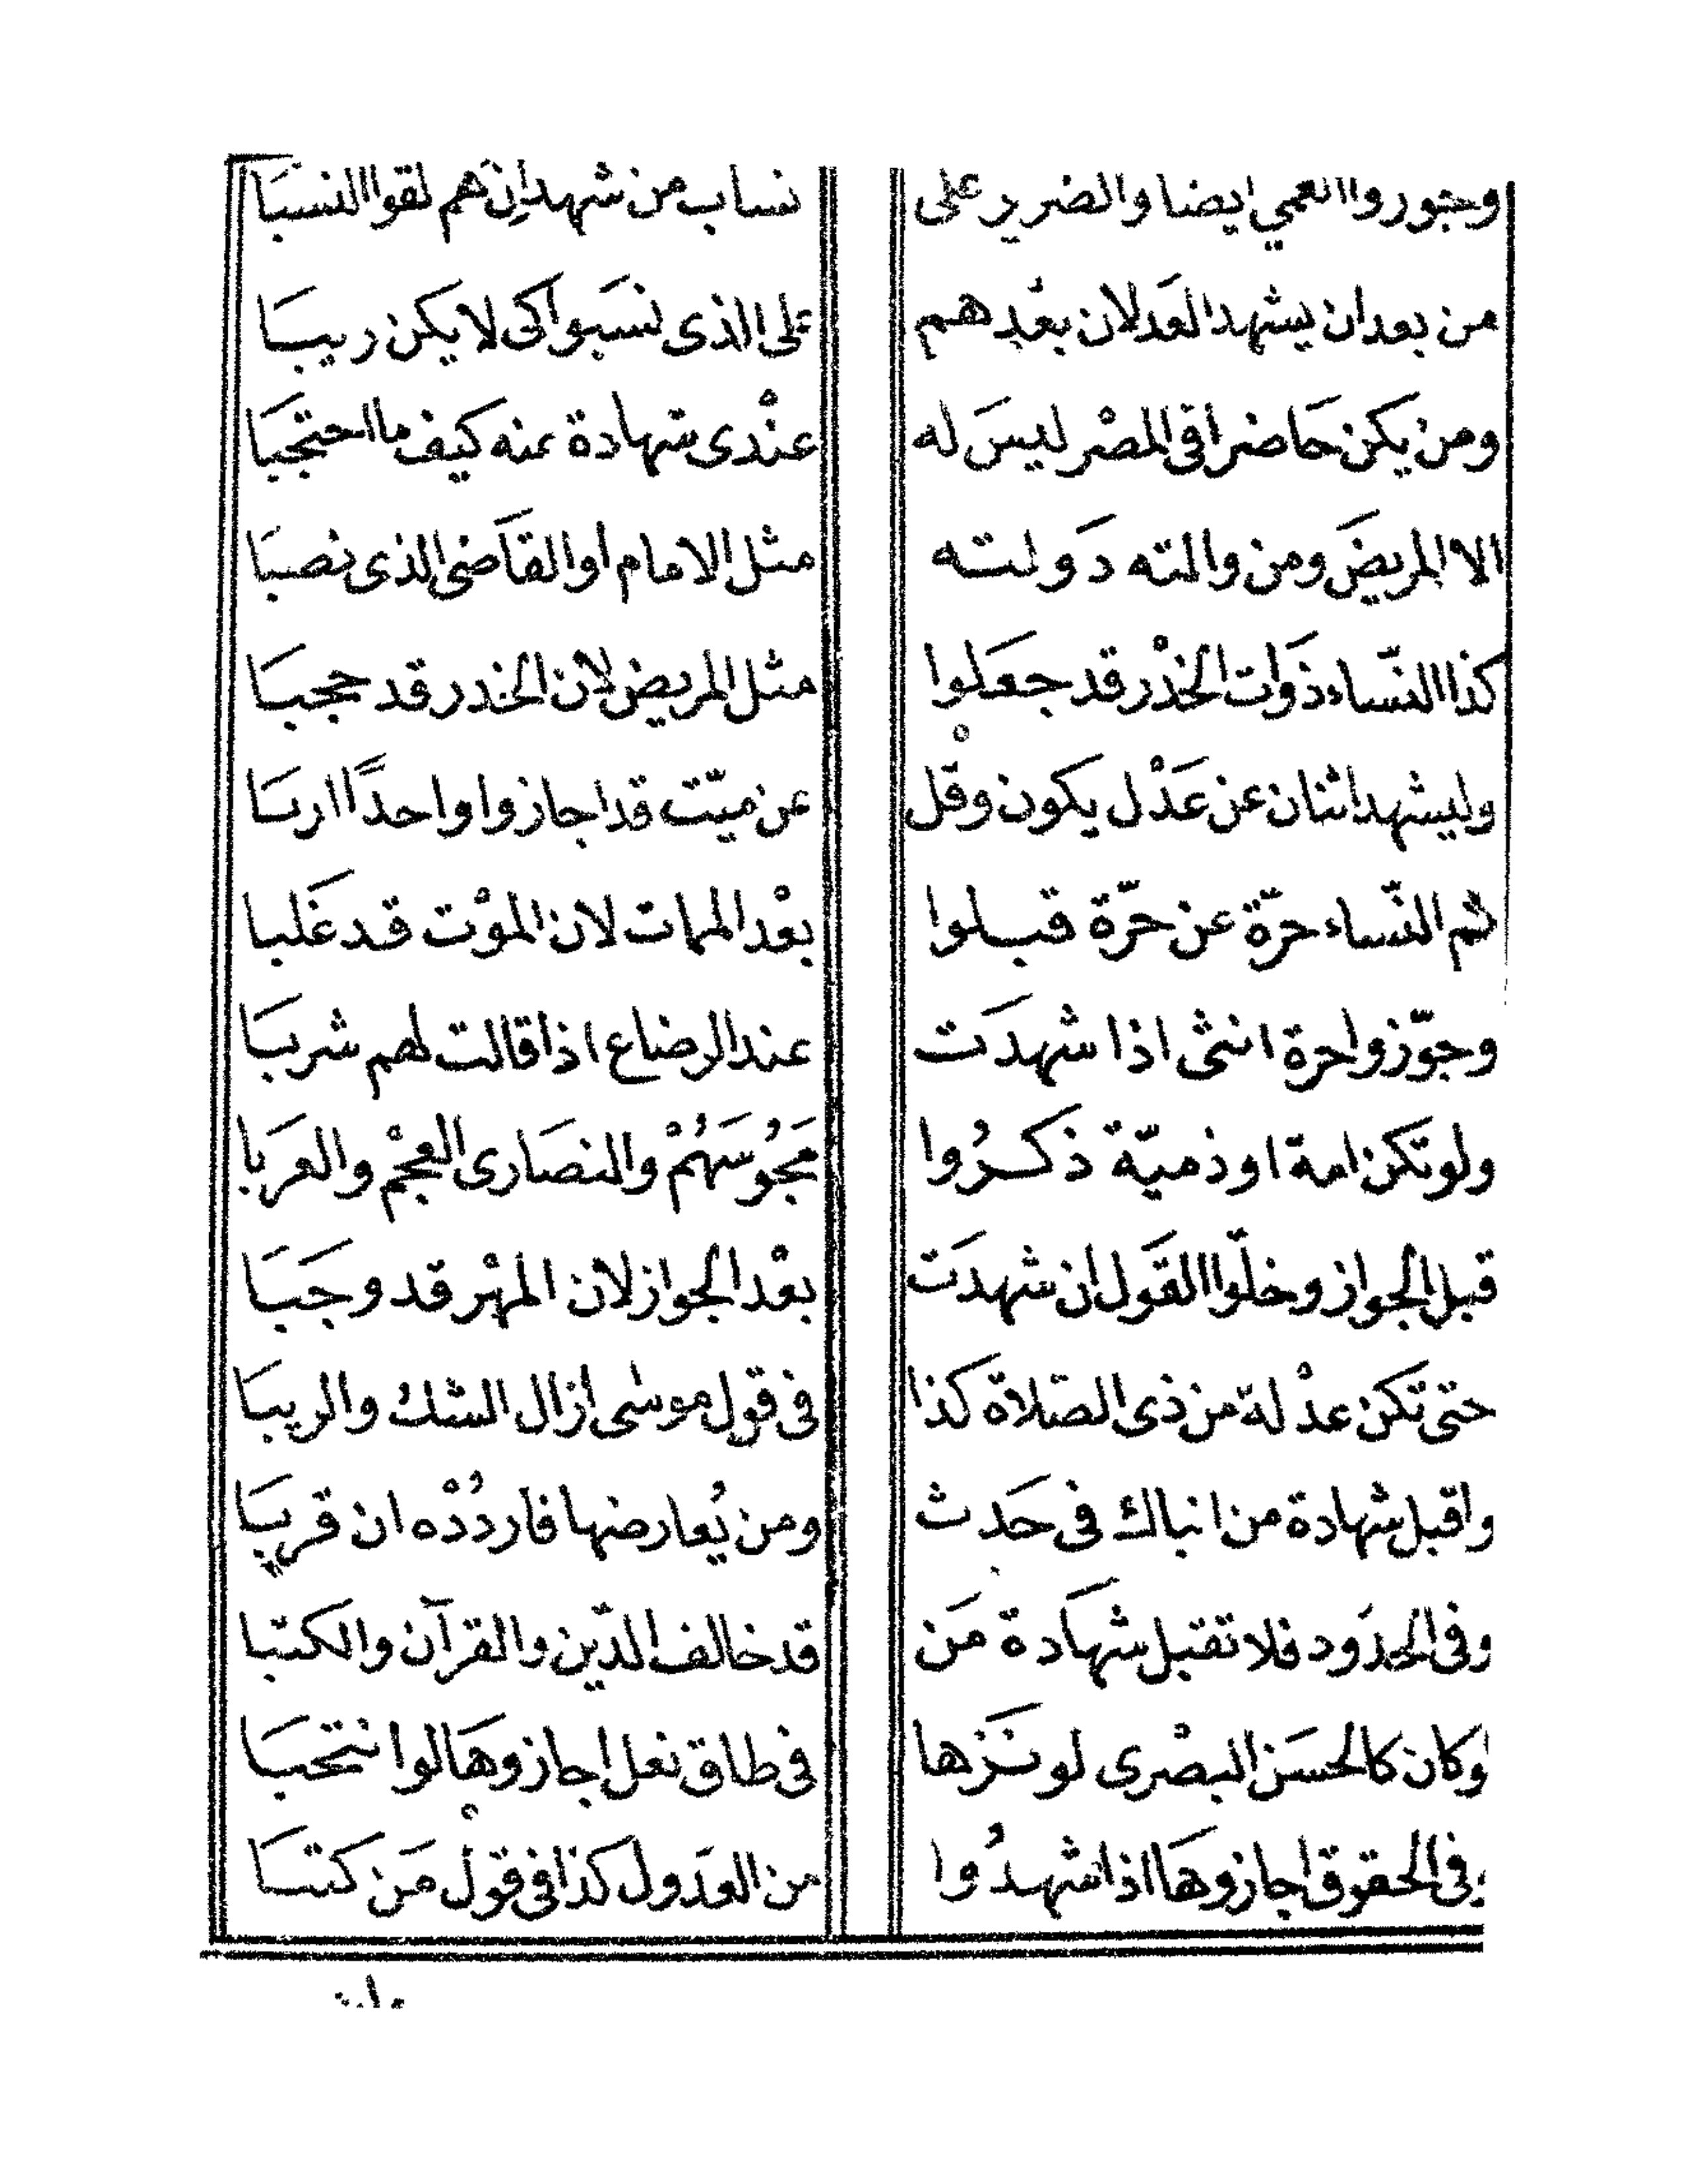 وجوزوا العمي ايضا والضرير على نساب من شهدان هم لقوا النسبَا
من بعد ان يشهد العَدلان بعْد هم على الذى نسَبوا كى لا يكن ريبَا
ومن يكن حَاضرا فى المصْر ليسَ له عنْدى شهادة عنه كيف ما احتجبَا
الا المريضَ ومن والته دَولته مثل الامام او القَاضى الذى نصبَا
كذا النّساء ذوَات الخدْر قد جعَلوا مثل المريض لان الخدر قد حجبَا
وليشهد اثنان عن عَدْل يكون وقل عن ميّت قد اجازوا واحدًا اربَا
ثم النّساء حرّة عن حرّة قبلوا بعْد الممات لان الموْت قد غَلبا
وجوّزوا حرة انثى اذا شهدَت عند الرضاع اذا قالت لهم شربَا
ولو تكن امة او ذميّة ذكرُوا مَجُوسَهُمْ والنصَارى العجْم والعرَبا
قبل الجواز وخلّوا القَول ان شهدَت بعْد الجواز لان المهْر قد وجَبَا
حتى تكن عدْلة من ذى الصّلاة كذا فى قول موسٰى ازال الشك والريبَا
واقبل شهادة من انباك فى حَدث ومن يُعارضها فاردُدْه ان قربَا
وفى الحدُود فلا تقبل شهَادة مَن قد خالف الدّين والقرآن والكتبا
وكان كالحسَن البصْرى لو نَزها فى طاق نعل اجازوهَا لوا نتحبَا
وفى الحقوق اجازوهَا اذا شهدُوا من العدَول كذا فى قوْل مَن كتبَا